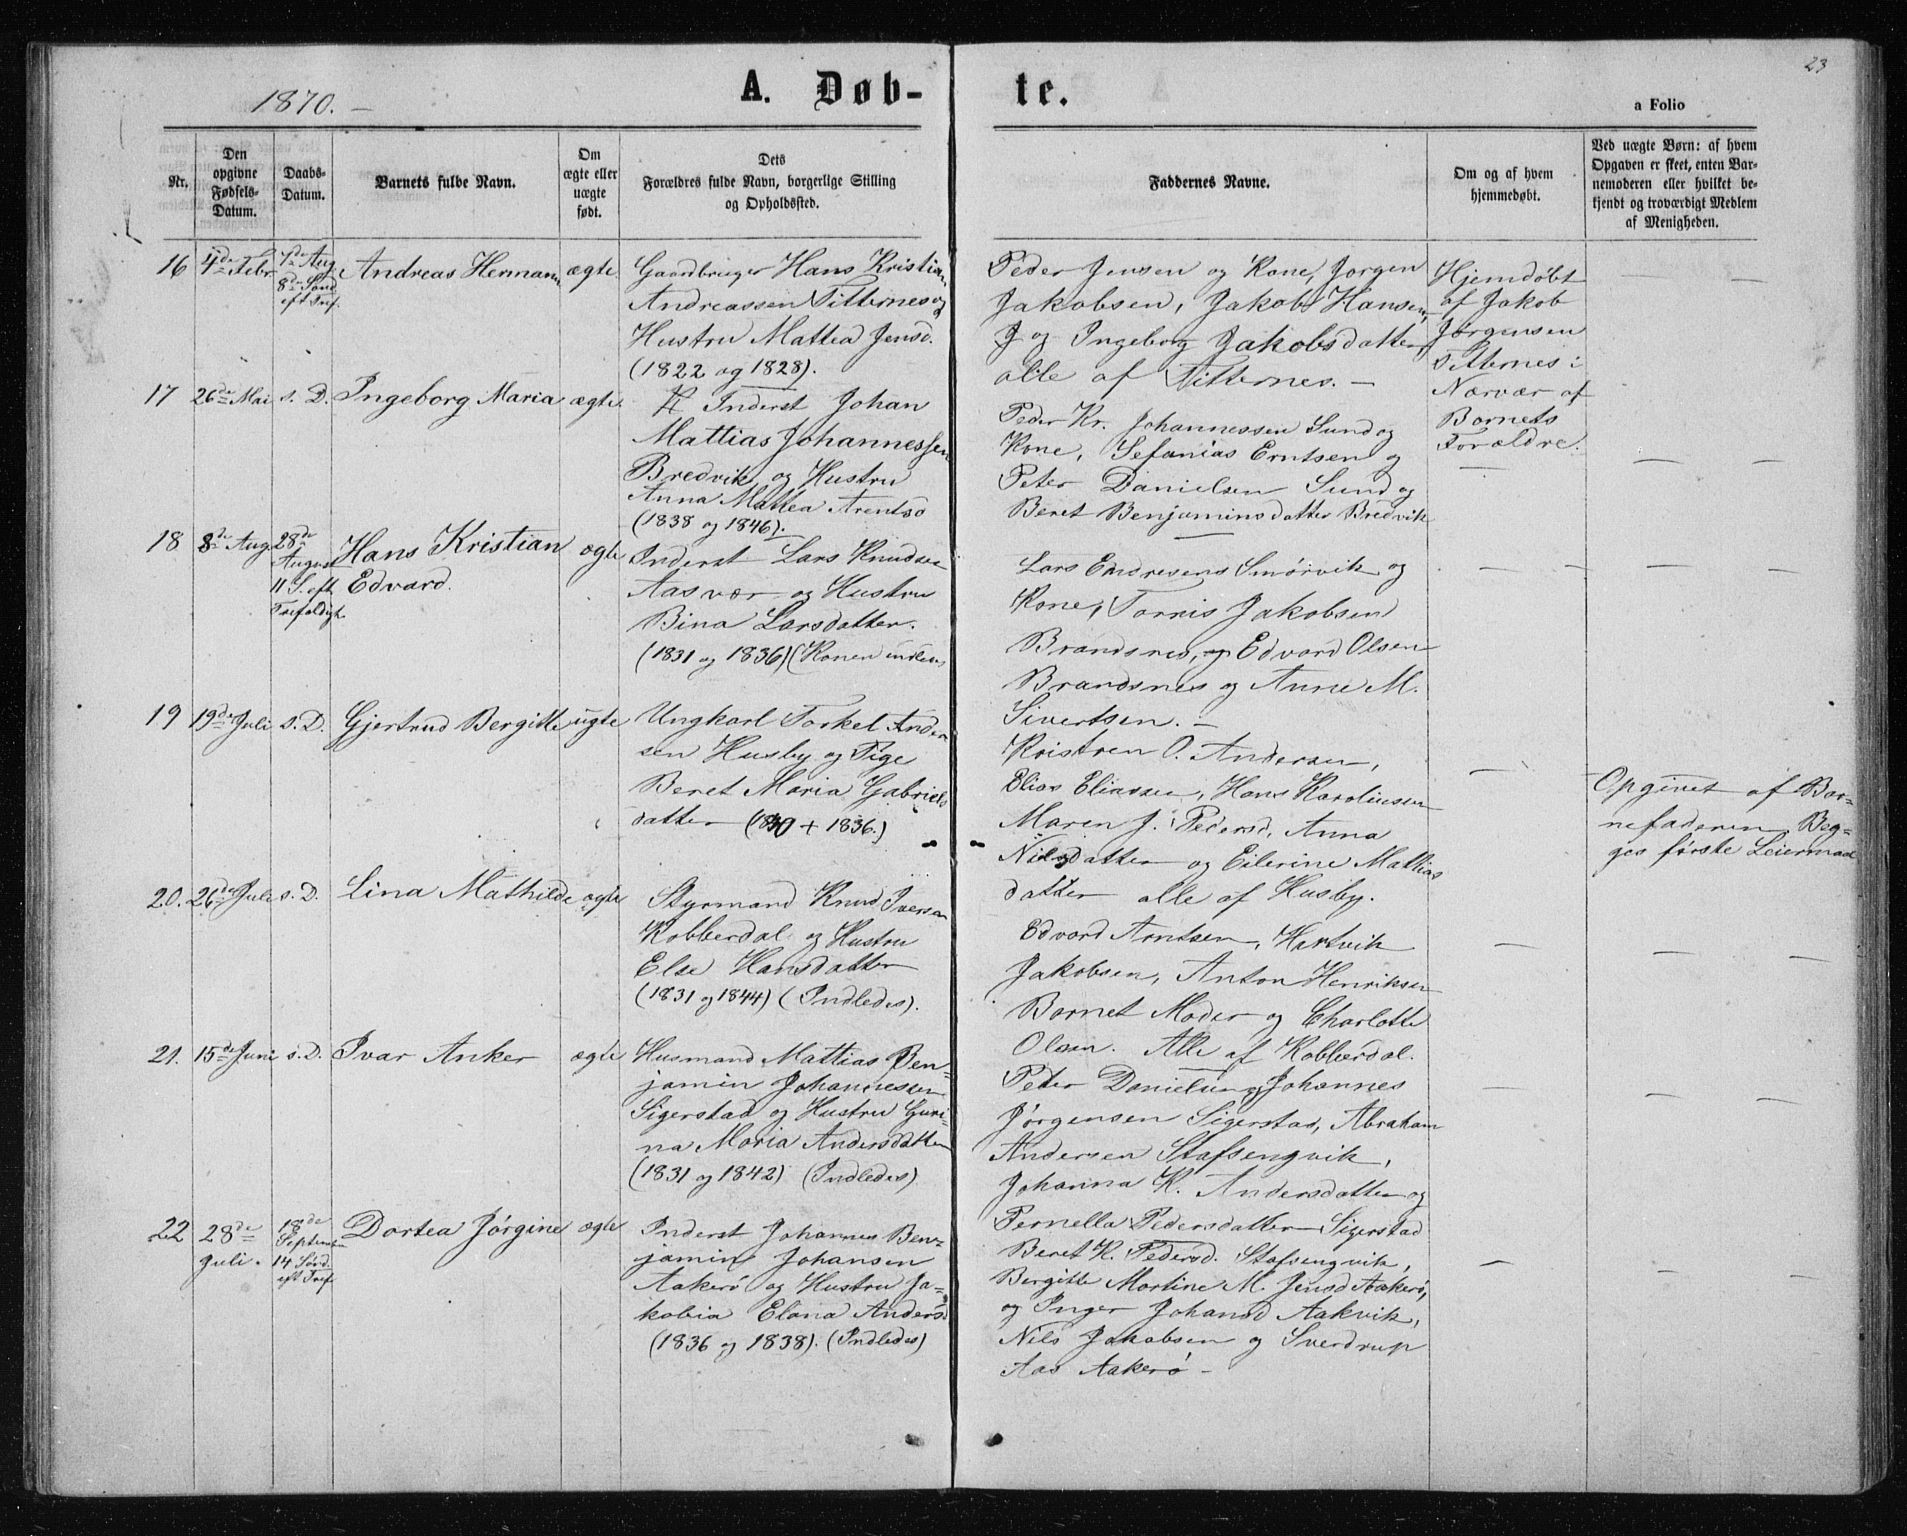 1870. –
A. Døb-
te.
23
a Folio
Nr.
Den opgivne Fødsels-Datum.
Daabs-Datum.
Barnets fulde Navn.
Om ægte eller uægte født.
Dets Forældres fulde Navn, borgerlige Stilling og Opholdssted.
Faddernes Navne.
Om og af hvem hjemmedøbt.
Ved uægte Børn: af hvem Opgaven er skeet, enten Barnemoderen eller hvilket bekjendt og troværdigt Medlem af Menigheden.
16 4de Febr 7de Aug Andreas Hermann ægte
8de Sønd
eft Tref.
Gaardbruger Hans Kristian
Andreassen Titternes og
Hustru Mattea Jensd.
(1822 og 1828).
Peder Jensen og Kone, Jørgen
Jakobsen, Jakob Hansen,
J og Ingeborg Jakobsdatter
alle af Titternes. –
Hjemdøbt
af Jakob
Jørgensen
Titternes i
Nærvær af
Barnets
Forældre.
17 26de Mai s. D. Ingeborg Maria ægte
Inderst Johan
Mattias Johannessen
Bredvik og Hustru
Anna Mattea Arentsd
(1838 og 1846).
Peder Kr. Johannessen Sund og
Kone, Sefanias Erntsen og
Peter Danielsen Sund og
Beret Benjaminsdatter Bredvik
18 8de Aug. 28de August 11 S. eft Trefoldigh. Hans Kristian ægte
Edvard.
Inderst Lars Knudsen
Aasvær og Hustru
Bina Larsdatter.
(1831 og 1836) (Konen indledes
Lars Endresens Smørvik og
Kone, Tarris Jakobsen
Brandsnes, og Edvard Olsen
Brandsnes og Anne M.
Sivertsen. –
19 19de Juli s. D. Gjertrud Bergitte ugte
Ungkarl Torkel Ander
sen Husby og Pige
Beret Maria Gabriels
datter (1840 + 1836.)
Kristren O. Andersen,
Elias Eliassen, Hans Karoliussen
Maren J. Pedersd, Anna
Nilsdatter og Eilerine Mattias
datter alle af Husby.
Opgivet af Bar-
nefaderen Beg-
ges første Leiermaal
20. 26de Juli s. D. Lina Mathilde ægte
Styrmand Knud Iversen
Kobberdal og Hustru
Else Hansdatter
(1831 og 1844) (Indledes).
Edvard Arntsen, Hartvik
Jakobsen, Anton Henriksen
Barnet Moder og Charlotte
Olsen. Alle af Kobberdal.
21. 15de Juni s. D. Ivar Anker ægte
Husmand Mattias Ben-
jamin Johannessen
Sigerstad og Hustru Guri-
na Maria Andersdatter
(1831 og 1842) (Indledes)
Peter Danielsen og Johannes
Jørgensen Sigerstad, Abraham
Andersen Stafsengvik,
Johanna K. Andersdatter og
Pernella Pedersdatter Sigerstad
22 28de Juli. 18de September 14 Sønd. eft Tref. Dortea Jørgine ægte
Inderst Johannes Ben-
jamin Johansen
Aakerø og Hustru Ja-
kobia Elana Andersd
(1836 og 1838). (Indledes)
Beret K. Pedersd. Stafsengvik,
Bergitte Martine M. Jensd Aakerø,
og Inger Johansd Aakvik,
Nils Jakobsen og Sverdrup
Aas Aakerø –